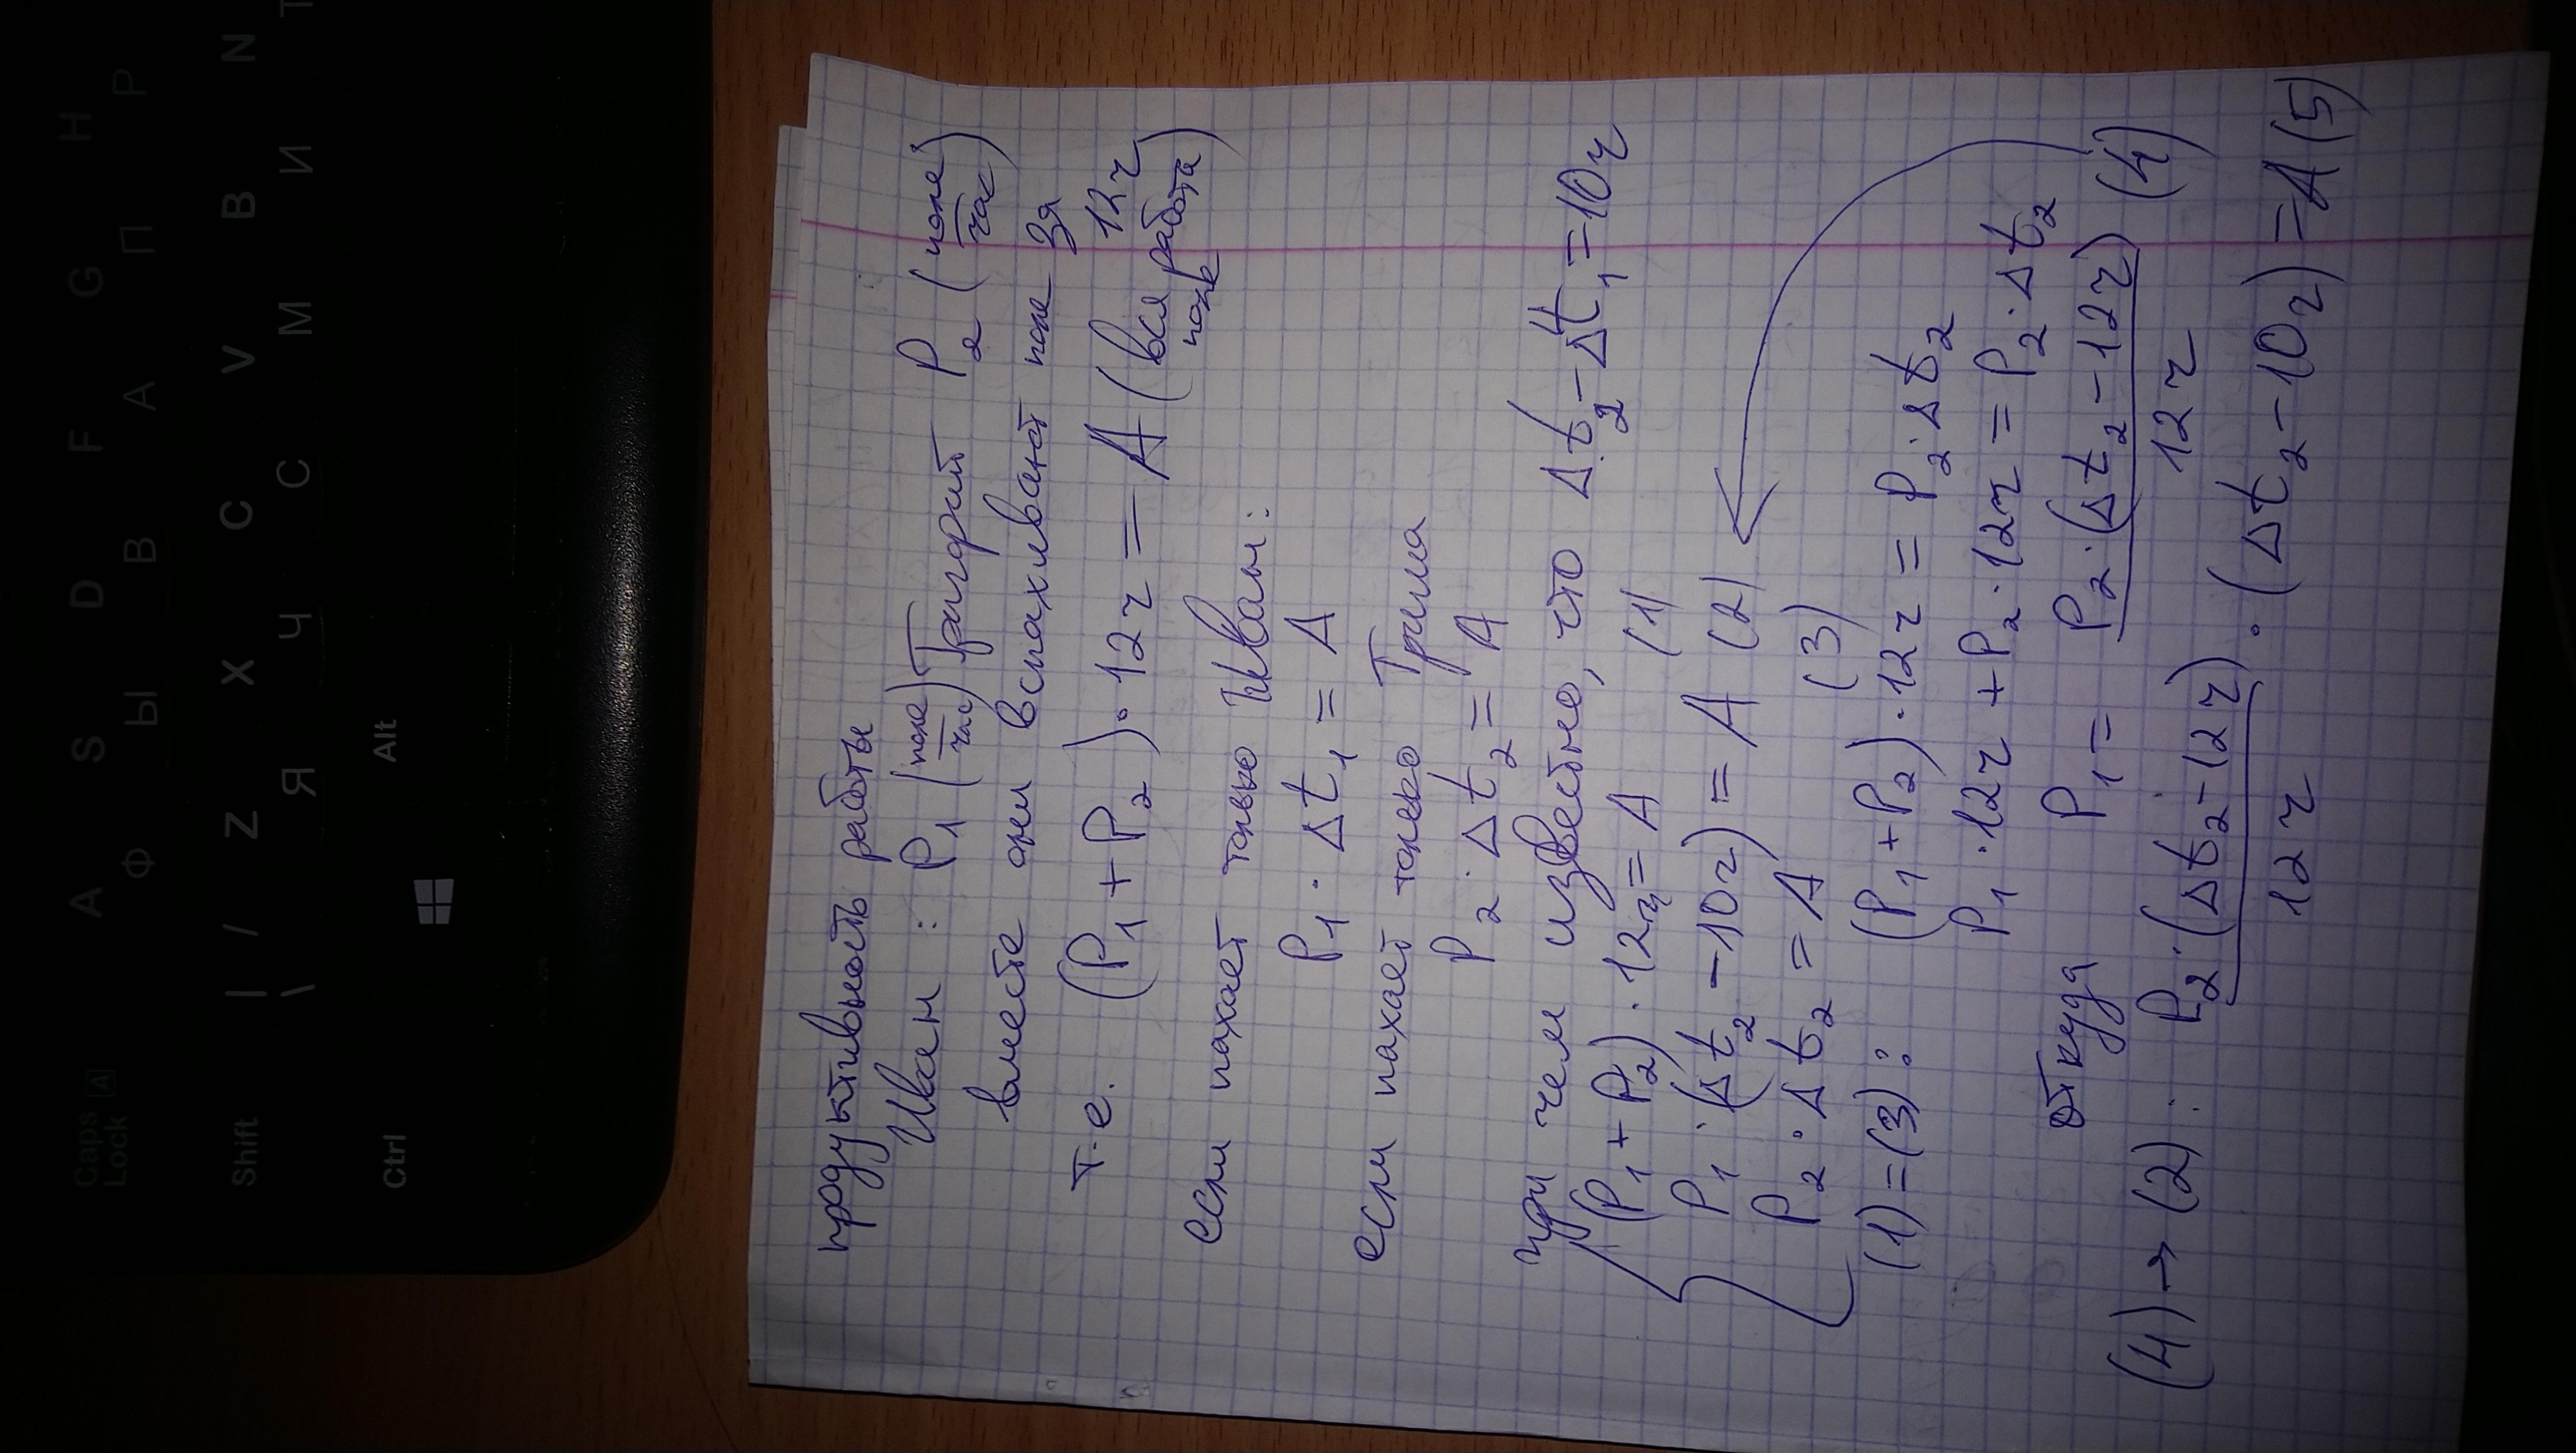 продуктивность работы
Иван: P₁ (поле/час) Григорий P₂ (поле/час)
вместе они вспахивают поле за 12ч
т.е. (P₁+P₂)·12ч = A (вся работа
поле)
если пахает только Иван:
P₁·Δt₁ = A
если пахает только Гриша
P₂·Δt₂ = A
при чем известно, что Δt₂-Δt₁=10ч
(P₁+P₂)·12ч=A (1)
P₁·(Δt₂-10ч)=A (2)
P₂·Δt₂=A (3)
(1)=(3): (P₁+P₂)·12ч=P₂·Δt₂
P₁·12ч+P₂·12ч=P₂·Δt₂
откуда P₁= P₂·(Δt₂-12ч)/12ч (4)
(4)→(2): P₂·(Δt₂-12ч)/12ч·(Δt₂-10ч)=A (5)
Caps Lock A
A S D F G H
Ф Ы В А П Р
Shift | \ / Z X C V B N
Я Ч С М И Т
Ctrl Alt